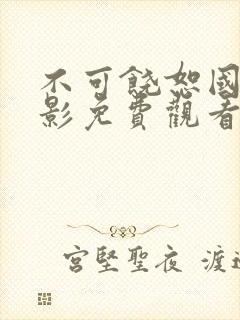 不可饶恕國
影免費觀看
宮堅聖夜 渡